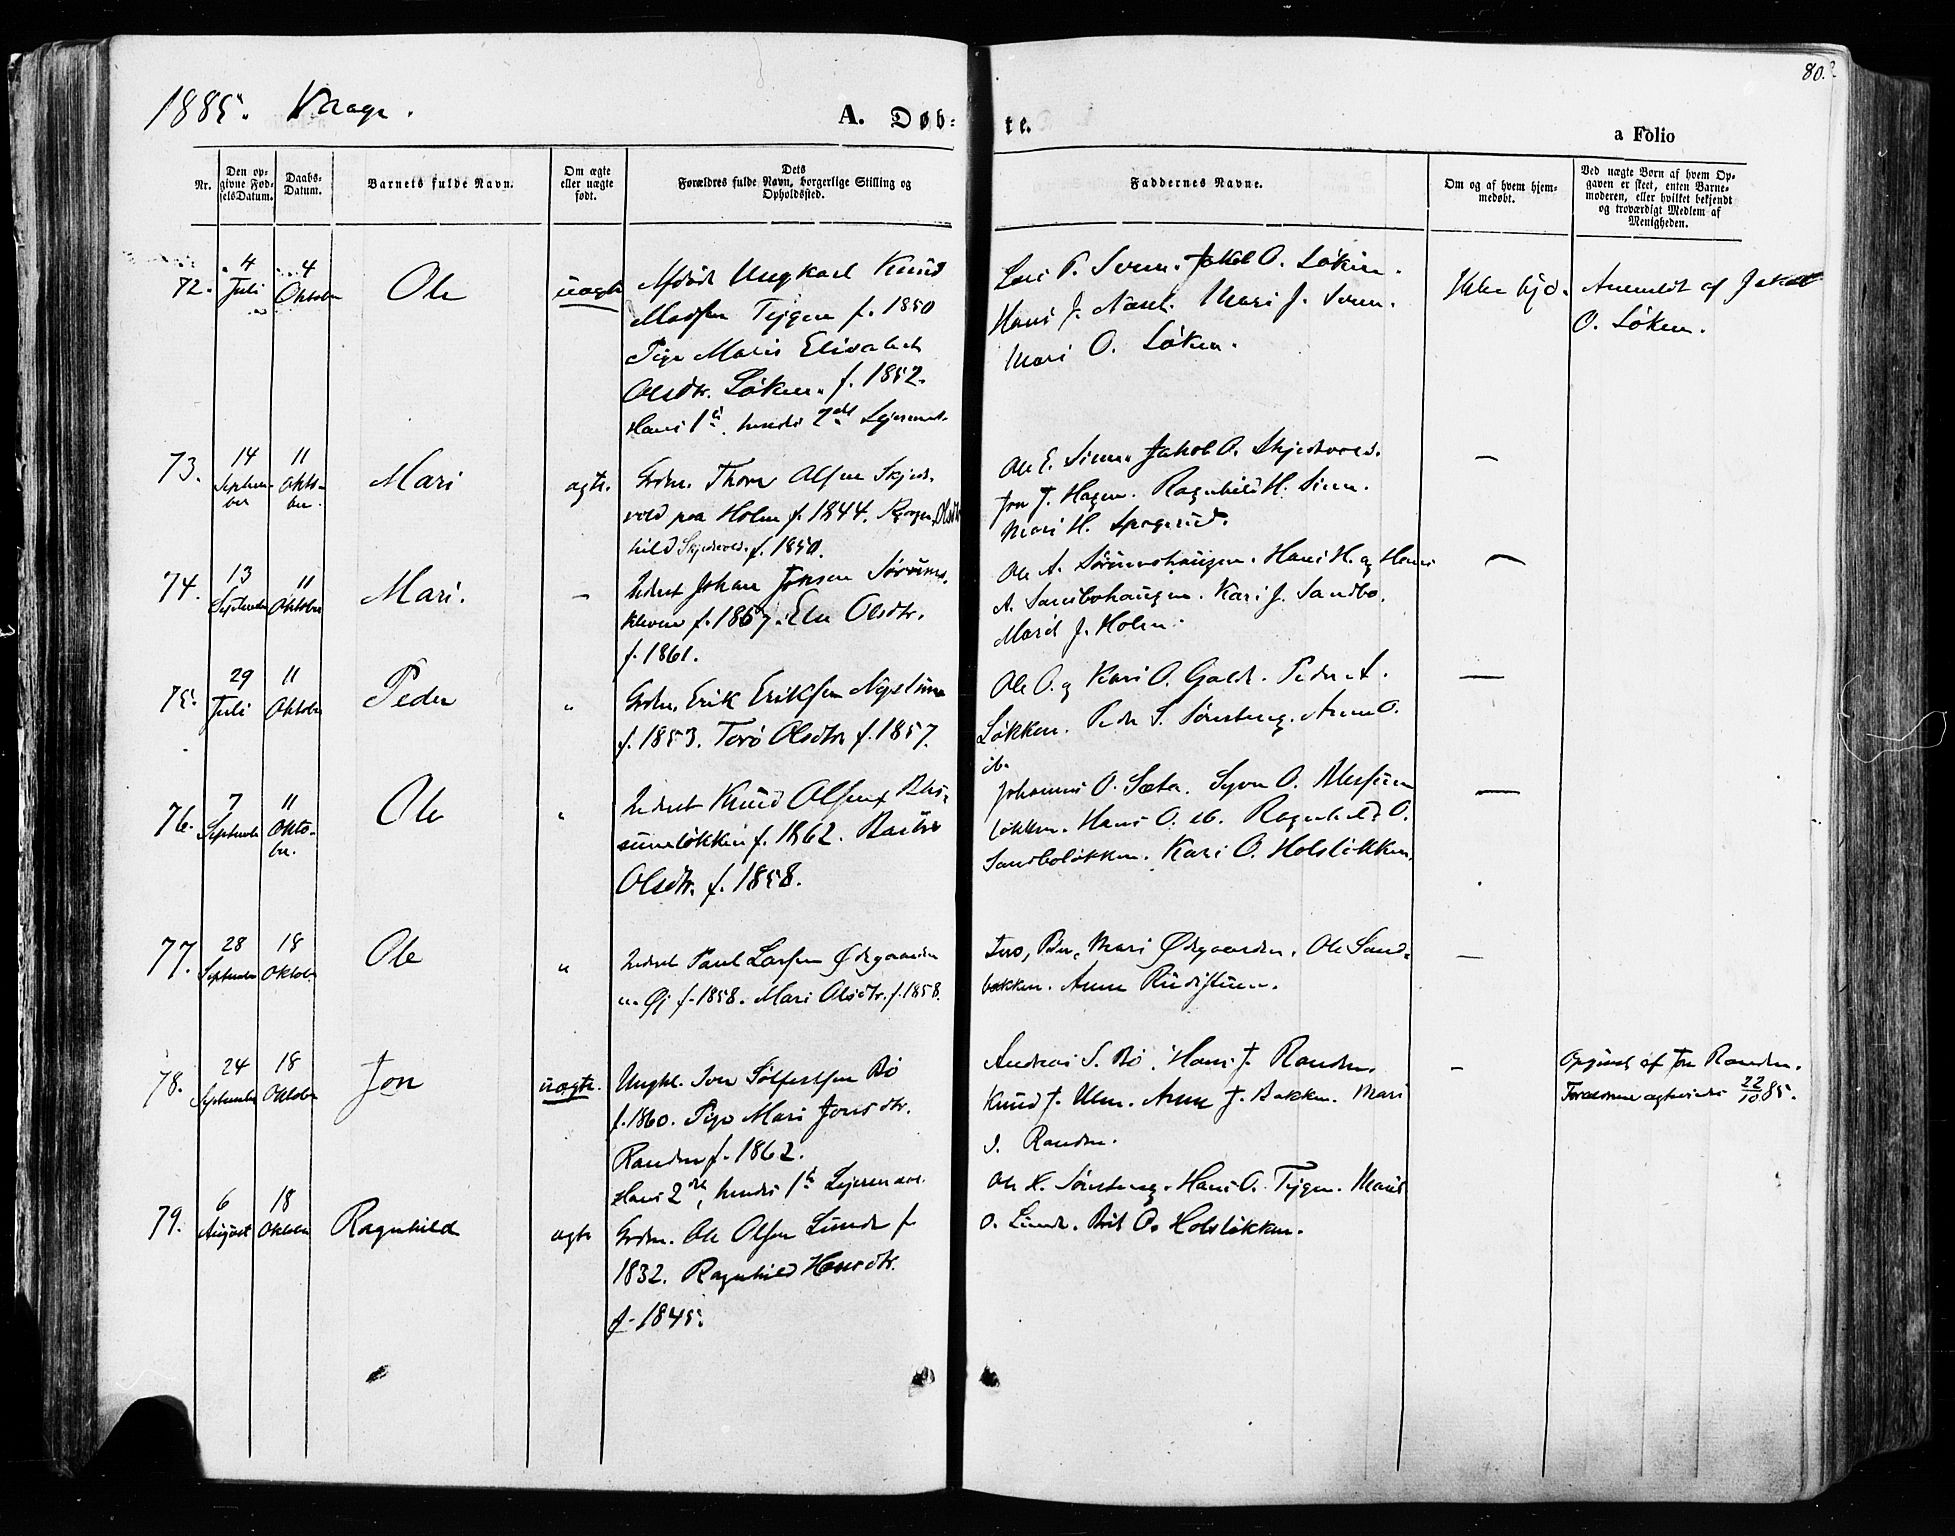 80.
1885. Vaage.
A. Døb-
te.
a Folio
Nr.
Den op-
givne Fød-
selsDatum.
Daabs-
Datum.
Barnets fulde Navn.
Om ægte
eller uægte
født.
Dets
Forældres fulde Navn, borgerlige Stilling og
Opholdssted.
Faddernes Navne.
Om og af hvem hjem-
medøbt.
Ved uægte Børn af hvem Op-
gaven er skeet, enten Barne-
moderen, eller hvilket bekjendt
og troværdigt Medlem af
Menigheden.
72.
4
Juli
4
Oktober
Ole
uægte
Ungkarl Knud
Madsen Tejgen f. 1850
Pige Maris Elisabeth
Olsdtr. Løken. f. 1852.
Hans 1ste, hendes 2det Lejermaal.
Lars P. Sveen. Jakob O. Løken.
Hans J. Mari J. Sveen.
Mari O. Løken.
Ikke hjd.
Anmeldt af Jakob
O. Løken.
73.
14
Septem-
ber
11
Okto-
ber.
Mari
ægte.
Grdm. Thor Olsen Skjed-
vold paa Holm f. 1844. Ragn- Olsdtr
hild Skjedvold f. 1850.
Ole E. Siem. Jakob O. Skjedvold.
Jon J. Hagen. Ragnhild H. Siem.
Mari H.
74.
13
September
11
Oktober
Mari.
—
Inderst Johan Jonsen Sørums-
kleven f. 1857. Eli Olsdtr.
f. 1861.
Ole A. Sørumshaugen. Hans H. og Hans
A. Sandbohaugen. Kari J. Sandbo.
Marit J. Holm.
—
75.
29
Juli
11
Oktober
Peder
"
Grdm. Erik Eriksen Nystuen
f. 1853. Torø Olsdtr f. 1857.
Ole O. og Kari O. Galde. Peder A.
Løkken. Peder S. Sønsteng. Anne O.
ib.
—
76.
7
September
11
Okto-
ber.
Ole
"
Inderst Knud Olsen
f. 1862.
Olsdtr. f. 1858.
Johannes O. Sæta. Syver O.
løkken. Hans O. ib. Ragnhild O.
Sandboløkken. Kari O. Holsløkken.
—
77.
28
September
18
Oktober.
Ole
"
Inderst Paul Larsen Ødegaarden
f. 1858. Mari Olsdtr. f. 1858.
Iver, Peder, Mari Ødegaarden. Ole Sand-
bakken. Anne Rudistuen.
—
78.
24
September
18
Oktober
Jon
uægte.
Ungkl. Iver Sølfestsen Bø
f. 1860. Pige Mari Jonsdtr.
Randen f. 1862.
Hans 2det, hendes 1ste Lejermaal.
Andreas S. Bø. Hans J. Randen.
Knud J. Anne J. Bakken. Mari
I. Randen.
—
Opgivet af Jon Randen.
Forældrene ægteviede 22/10 85.
79.
6
August
18
Oktober
Ragnhild
ægte
Grdm. Ole Olsen Lunde f.
1832. Ragnhild Hansdtr.
f. 1845.
Ole K. Sønsteng. Hans O. Tejgen. Marit
O. Lunde. Brit O. Holsløkken.